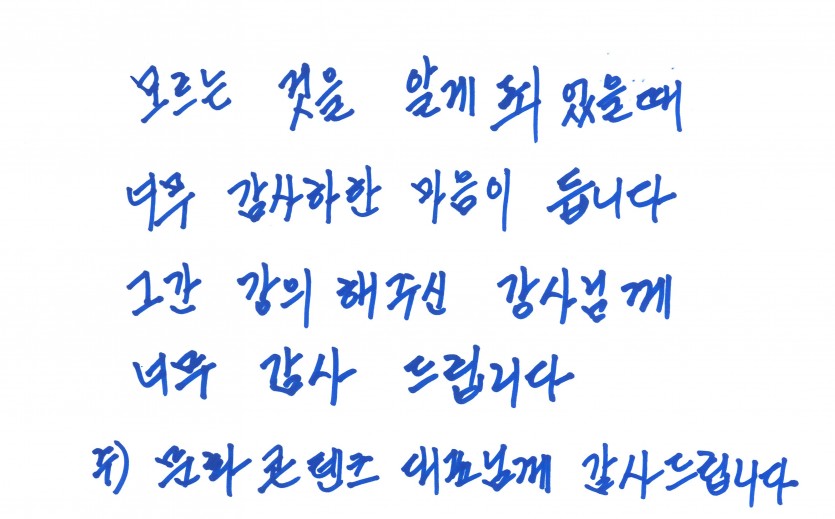 모르는 것을 알게 되 었을때
너무 감사하한 마음이 듭니다
그간 강의 해주신 강사님께
너무 감사 드립니다
주) 문화 콘텐츠 대표님께 감사드립니다